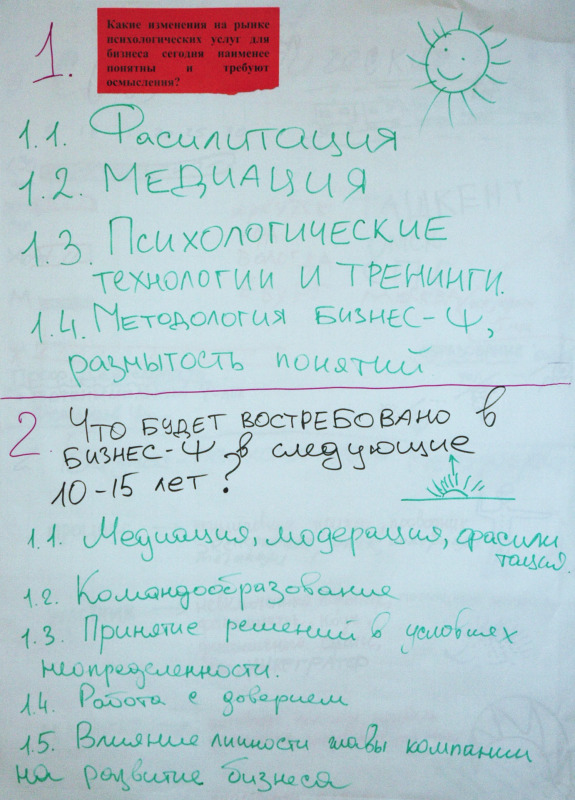 1.
Какие изменения на рынке
психологических услуг для
бизнеса сегодня наименее
понятны и требуют
осмысления?
1.1. Фасилитация
1.2. МЕДИАЦИЯ
1.3. Психологические
технологии и тренинги.
1.4. Методология бизнес-Ψ,
размытость понятий
2 Что будет востребовано в
бизнес-Ψ в следующие
10-15 лет?
1.1. Медиация, модерация, фасили
тация.
1.2. Командообразование
1.3. Принятие решений в условиях
неопределенности.
1.4. Работа с доверием
1.5. Влияние личности главы компании
на развитие бизнеса